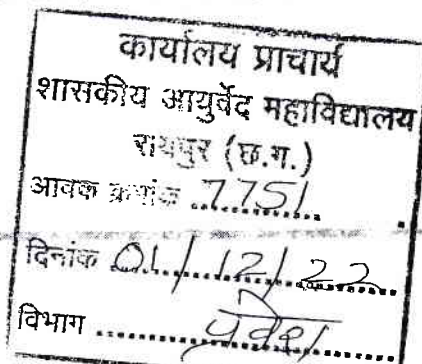 कार्यालय प्राचार्य
शासकीय आयुर्वेद महाविद्यालय
रायपुर (छ.ग.)
आवक क्रमांक 7751
दिनांक 01/12/22
विभाग प्रवेश